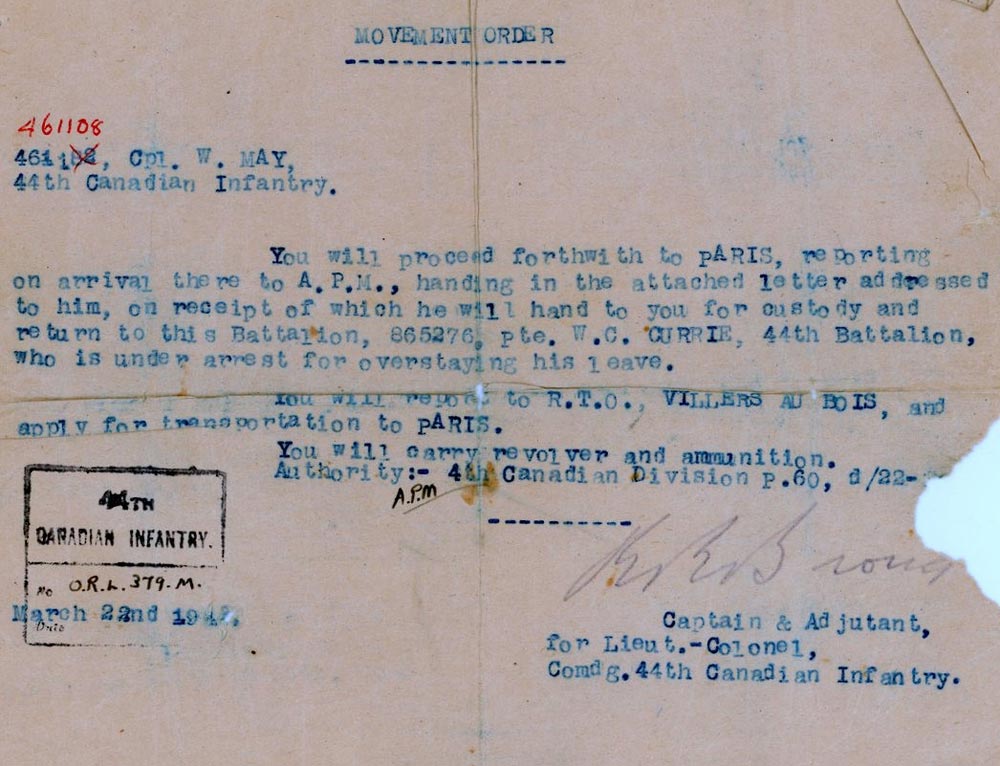 MOVEMENT ORDER
461108
461108, Cpl. W. MAY,
44th Canadian Infantry.
You will proceed forthwith to pARIS, reporting
on arrival there to A.P.M., handing in the attached letter addressed
to him, on receipt of which he will hand to you for custody and
return to this Battalion, 865276, pte. W.C. CURRIE, 44th Battalion,
who is under arrest for overstaying his leave.
You will report to R.T.O., VILLERS AU BOIS, and
apply for transportation to pARIS.
You will carry revolver and ammunition.
Authority:- 4th Canadian Division p.60, d/22-
A.P.M
44TH
CANADIAN INFANTRY.
No O.R.L. 379. M.
March 22nd
Date
Captain & Adjutant,
for Lieut.-Colonel,
Comdg. 44th Canadian Infantry.